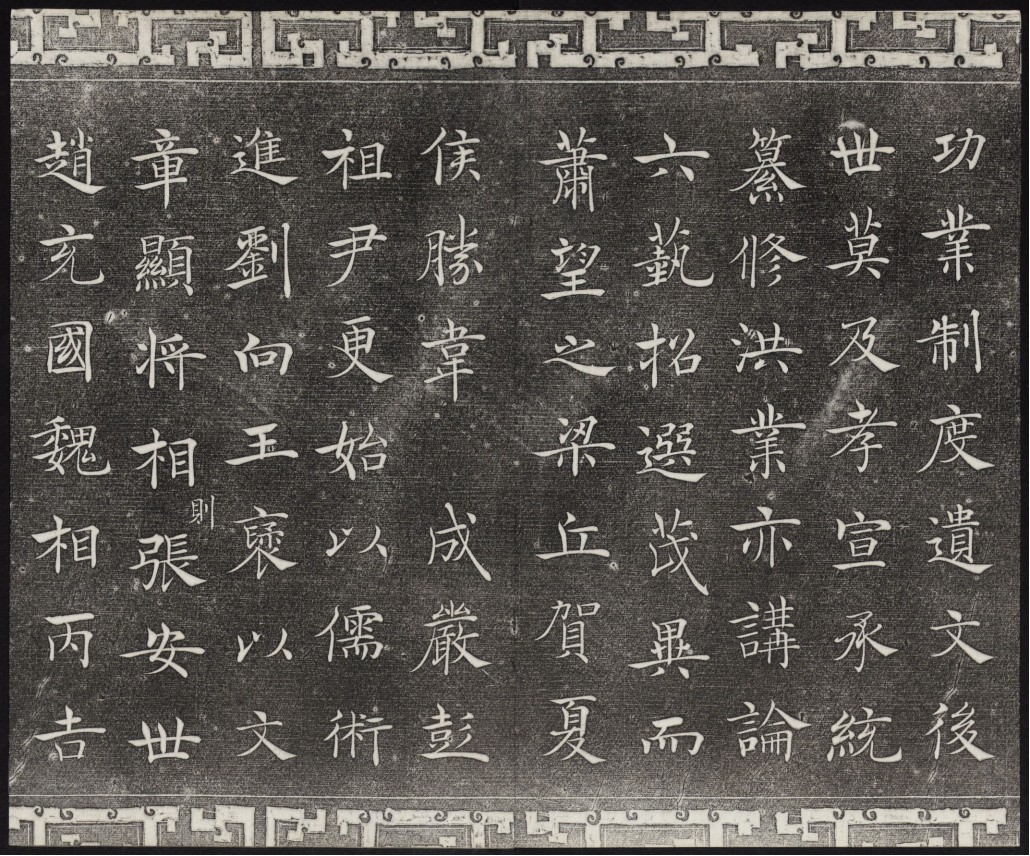 功業制度遺文後
世莫及孝宣承統
纂修洪業亦講論
六蓺招選茂異而
蕭望之梁丘賀夏
侯勝韋 成嚴彭
祖尹更始以儒術
進劉向王襃以文
章顯将相則張安世
趙充國魏相丙吉